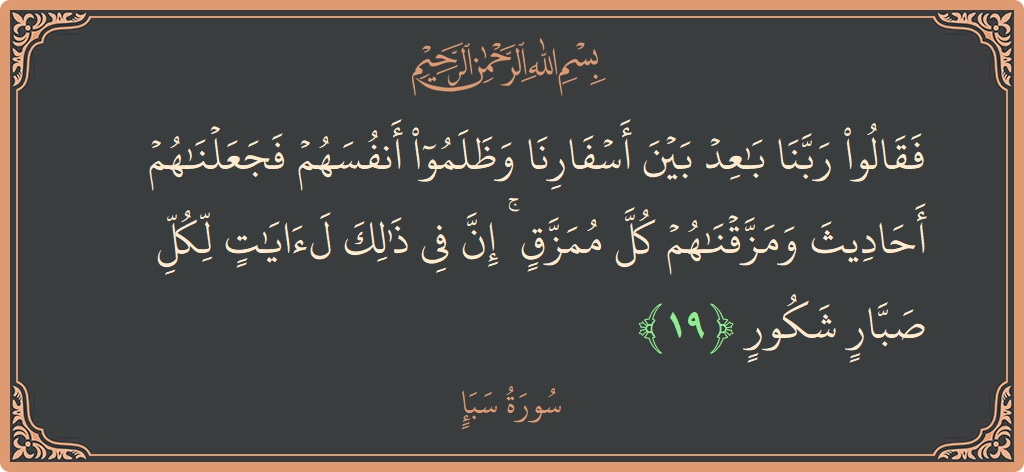 بِسْمِ اللهِ الرَّحْمٰنِ الرَّحِيْمِ
فَقَالُوا۟ رَبَّنَا بَـٰعِدْ بَيْنَ أَسْفَارِنَا وَظَلَمُوٓا۟ أَنفُسَهُمْ فَجَعَلْنَـٰهُمْ
أَحَادِيثَ وَمَزَّقْنَـٰهُمْ كُلَّ مُمَزَّقٍ ۚ إِنَّ فِى ذَٰلِكَ لَـَٔايَـٰتٍ لِّكُلِّ
صَبَّارٍ شَكُورٍ ﴿١٩﴾
سُورَةُ سَبَإٍ